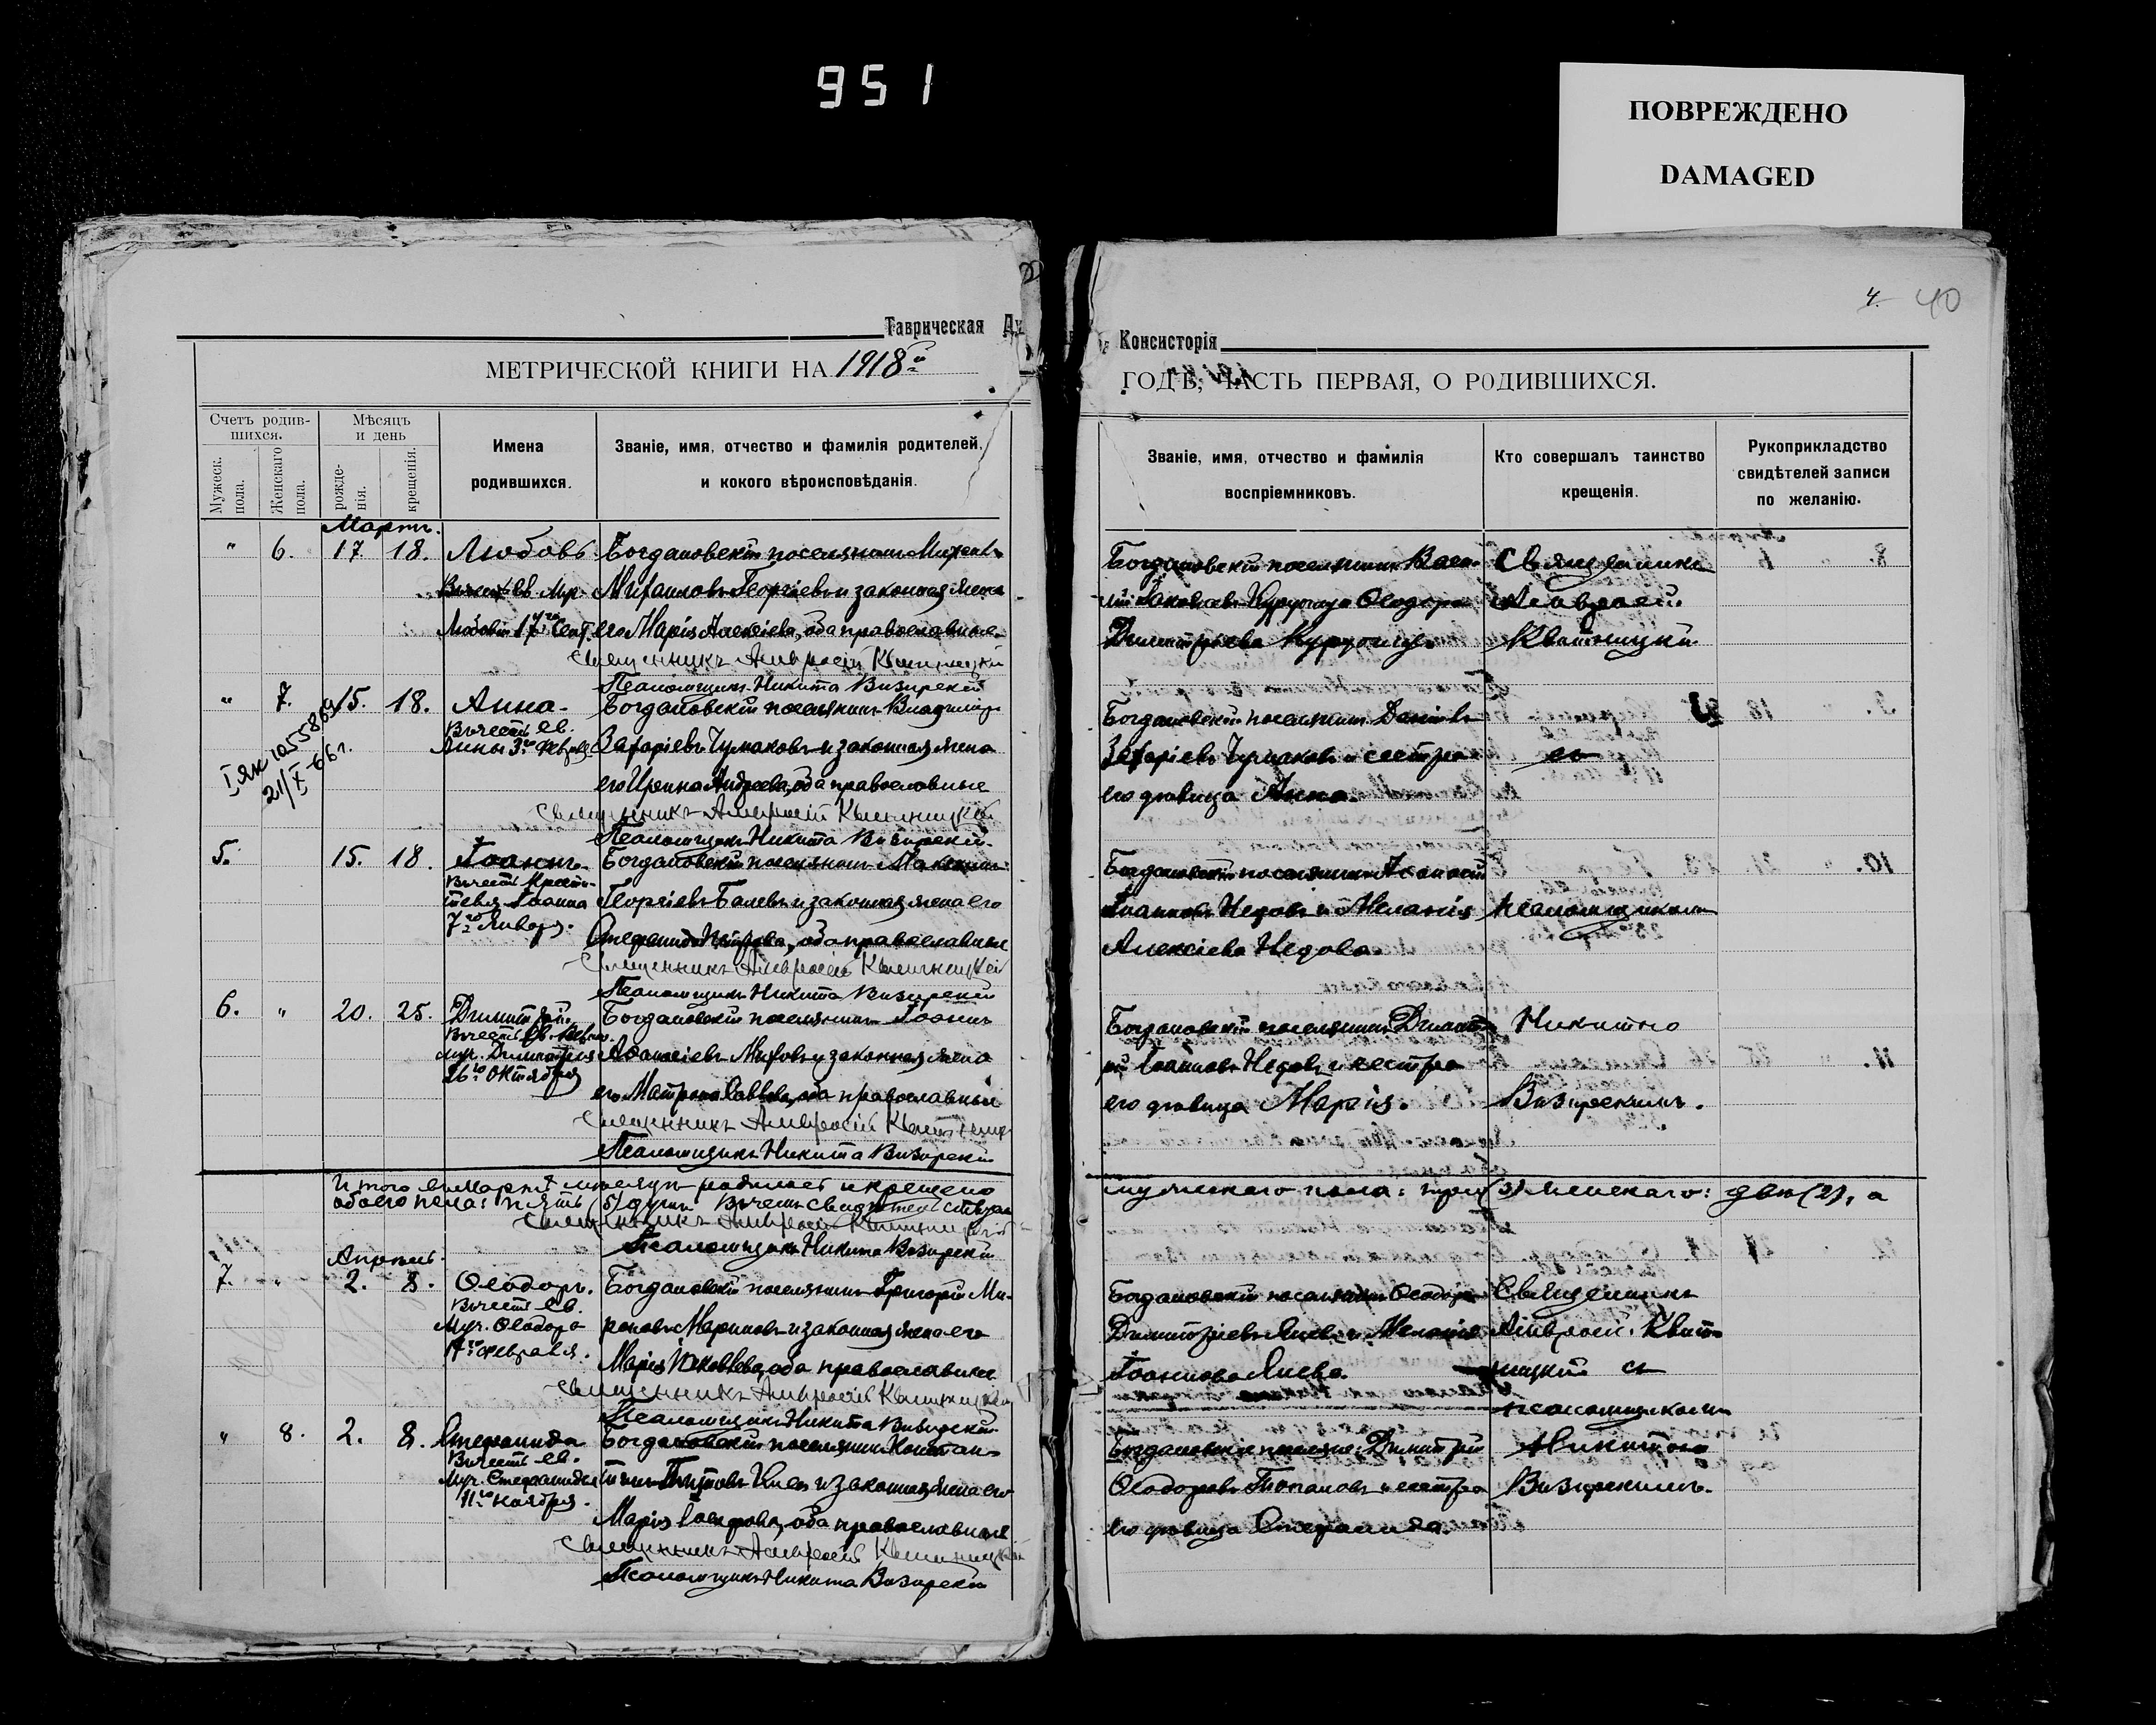 951
ПОВРЕЖДЕНО
DAMAGED
4. 40
Таврическая Ду
Консисторія
МЕТРИЧЕСКОЙ КНИГИ НА 1918й
ГОДЪ, ЧАСТЬ ПЕРВАЯ, О РОДИВШИХСЯ.
Счетъ родив-
шихся.
Мужеск. пола.
Женскаго пола.
Мѣсяцъ
и день
рожде-
нія.
крещенія.
Имена
родившихся.
Званіе, имя, отчество и фамилія родителей,
и кокого вѣроисповѣданія.
Званіе, имя, отчество и фамилія
воспріемниковъ.
Кто совершалъ таинство
крещенія.
Рукоприкладство
свидѣтелей записи
по желанію.
Мартъ.
" 6. 17. 18. Любовь
Въ честь Св. Муч.
Любови 17го Сент.
Богдановскій поселянинъ
Михаиловъ Георгіевъ и законная жена
его Марія Алексіева, оба православные
Священникъ Амвросій Квитницкій
Псаломщикъ Никита Визирскій
Богдановскій поселянинъ Васи-
лій Іаковлевъ Курточцу Ѳеодора
Димитріева Курточцу
Священникъ
Амвросій
Квитницкій
" 7. 15. 18. Анна
Въ честь Св.
Анны 3го Февраля
Богдановскій поселянинъ Владиміръ
Захаріевъ Чумаковъ и законная жена
его Ирина Андреева, оба православные
Священникъ Амвросій Квитницкій
Псаломщикъ Никита Визирскій
Богдановскій поселянинъ Даніилъ
Захаріевъ Чумаковъ и сестра
его дѣвица Анна.
съ
I як 1055869
21/X-66г.
5. 15. 18. Іоаннъ
Въ честь Крести-
теля Іоанна
7го Января.
Богдановскій поселянинъ Максимъ
Георгіевъ Балевъ и законная жена его
Стефанида Петрова, оба православные
Священникъ Амвросій Квитницкій
Псаломщикъ Никита Визирскій
Богдановскій поселянинъ Аѳанасій
Іоанновъ Недовъ и Меланія
Алексіева Недова.
псаломщикомъ
6. " 20. 25. Димитрій.
Въ честь Св. Велик.
муч. Димитрія
26го Октября
Богдановскій поселянинъ Іоаннъ
Аѳанасіевъ и законная жена
его Матрона Саввева, оба православные
Священникъ Амвросій Квитницк
Псаломщикъ Никита Визирскій
Богдановскій поселянинъ Димит-
рій Іоанновъ Недовъ и сестра
его дѣвица Марія.
Никитою
Визирскимъ.
Итого въ Мартѣ мѣсяцѣ родилось и крещено
обоего пола: пять (5) душъ. Въ чемъ свидѣтельствуемъ
мужескаго пола: три (3) женскаго: двѣ (2), а
Священникъ Амвросій Квитницкій
Псаломщикъ Никита Визирскій
Апрѣль.
7. " 2. 8. Ѳеодоръ.
Въ честь Св.
Муч. Ѳеодора
17го Февраля.
Богдановскій поселянинъ Григорій Ми-
роновъ Мариновъ и законная жена его
Марія Іаковлева, оба православные
Священникъ Амвросій Квитницкій
Псаломщикъ Никита Визирскій
Богдановскій поселянинъ Ѳеодоръ
Димитріевъ Янев и Меланія
Іоаннова Янева.
Священникъ
Амвросій Квит-
ницкій съ
псаломщикомъ
" 8. 2. 8. Стефанида
Въ честь Св.
Муч. Стефаниды
11го Ноября.
Богдановскій поселянинъ Констан-
тинъ Титовъ и законная жена его
Марія Іосифова, оба православные
Священникъ Амвросій Квитницкій
Псаломщикъ Никита Визирскій
Богдановскіе поселяне: Димитрій
Ѳеодоровъ Топаловъ и сестра
его дѣвица Стефанида.
Никитою
Визирскимъ.